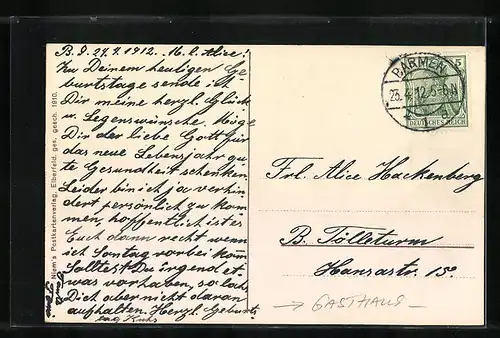 B. d. 24.4.1912. M. l. Alice!
Zu Deinem heutigen Ge-
burtstage sende ich
Dir meine herzl. Glück
u. Segenswünsche. Möge
Dir der liebe Gott für
das neue Lebensjahr gu-
te Gesundheit schenken.
Leider bin ich ja verhin
dert persönlich zu kom
men, hoffentlich ist es
Euch dann recht wenn
ich Sontag vorbei kom
Solltest Du irgend et-
was vorhaben, so lass
Dich aber nicht daran
aufhalten. Herzl. Geburts
tag Kuss
Niem's Postkartenverlag, Elberfeld, ges. gesch. 1910.
BARMEN
23.4.12.5-6N
5
DEUTSCHES REICH
Frl. Alice Hackenberg
B. Tölleturm
Hansastr. 15.
→ GASTHAUS